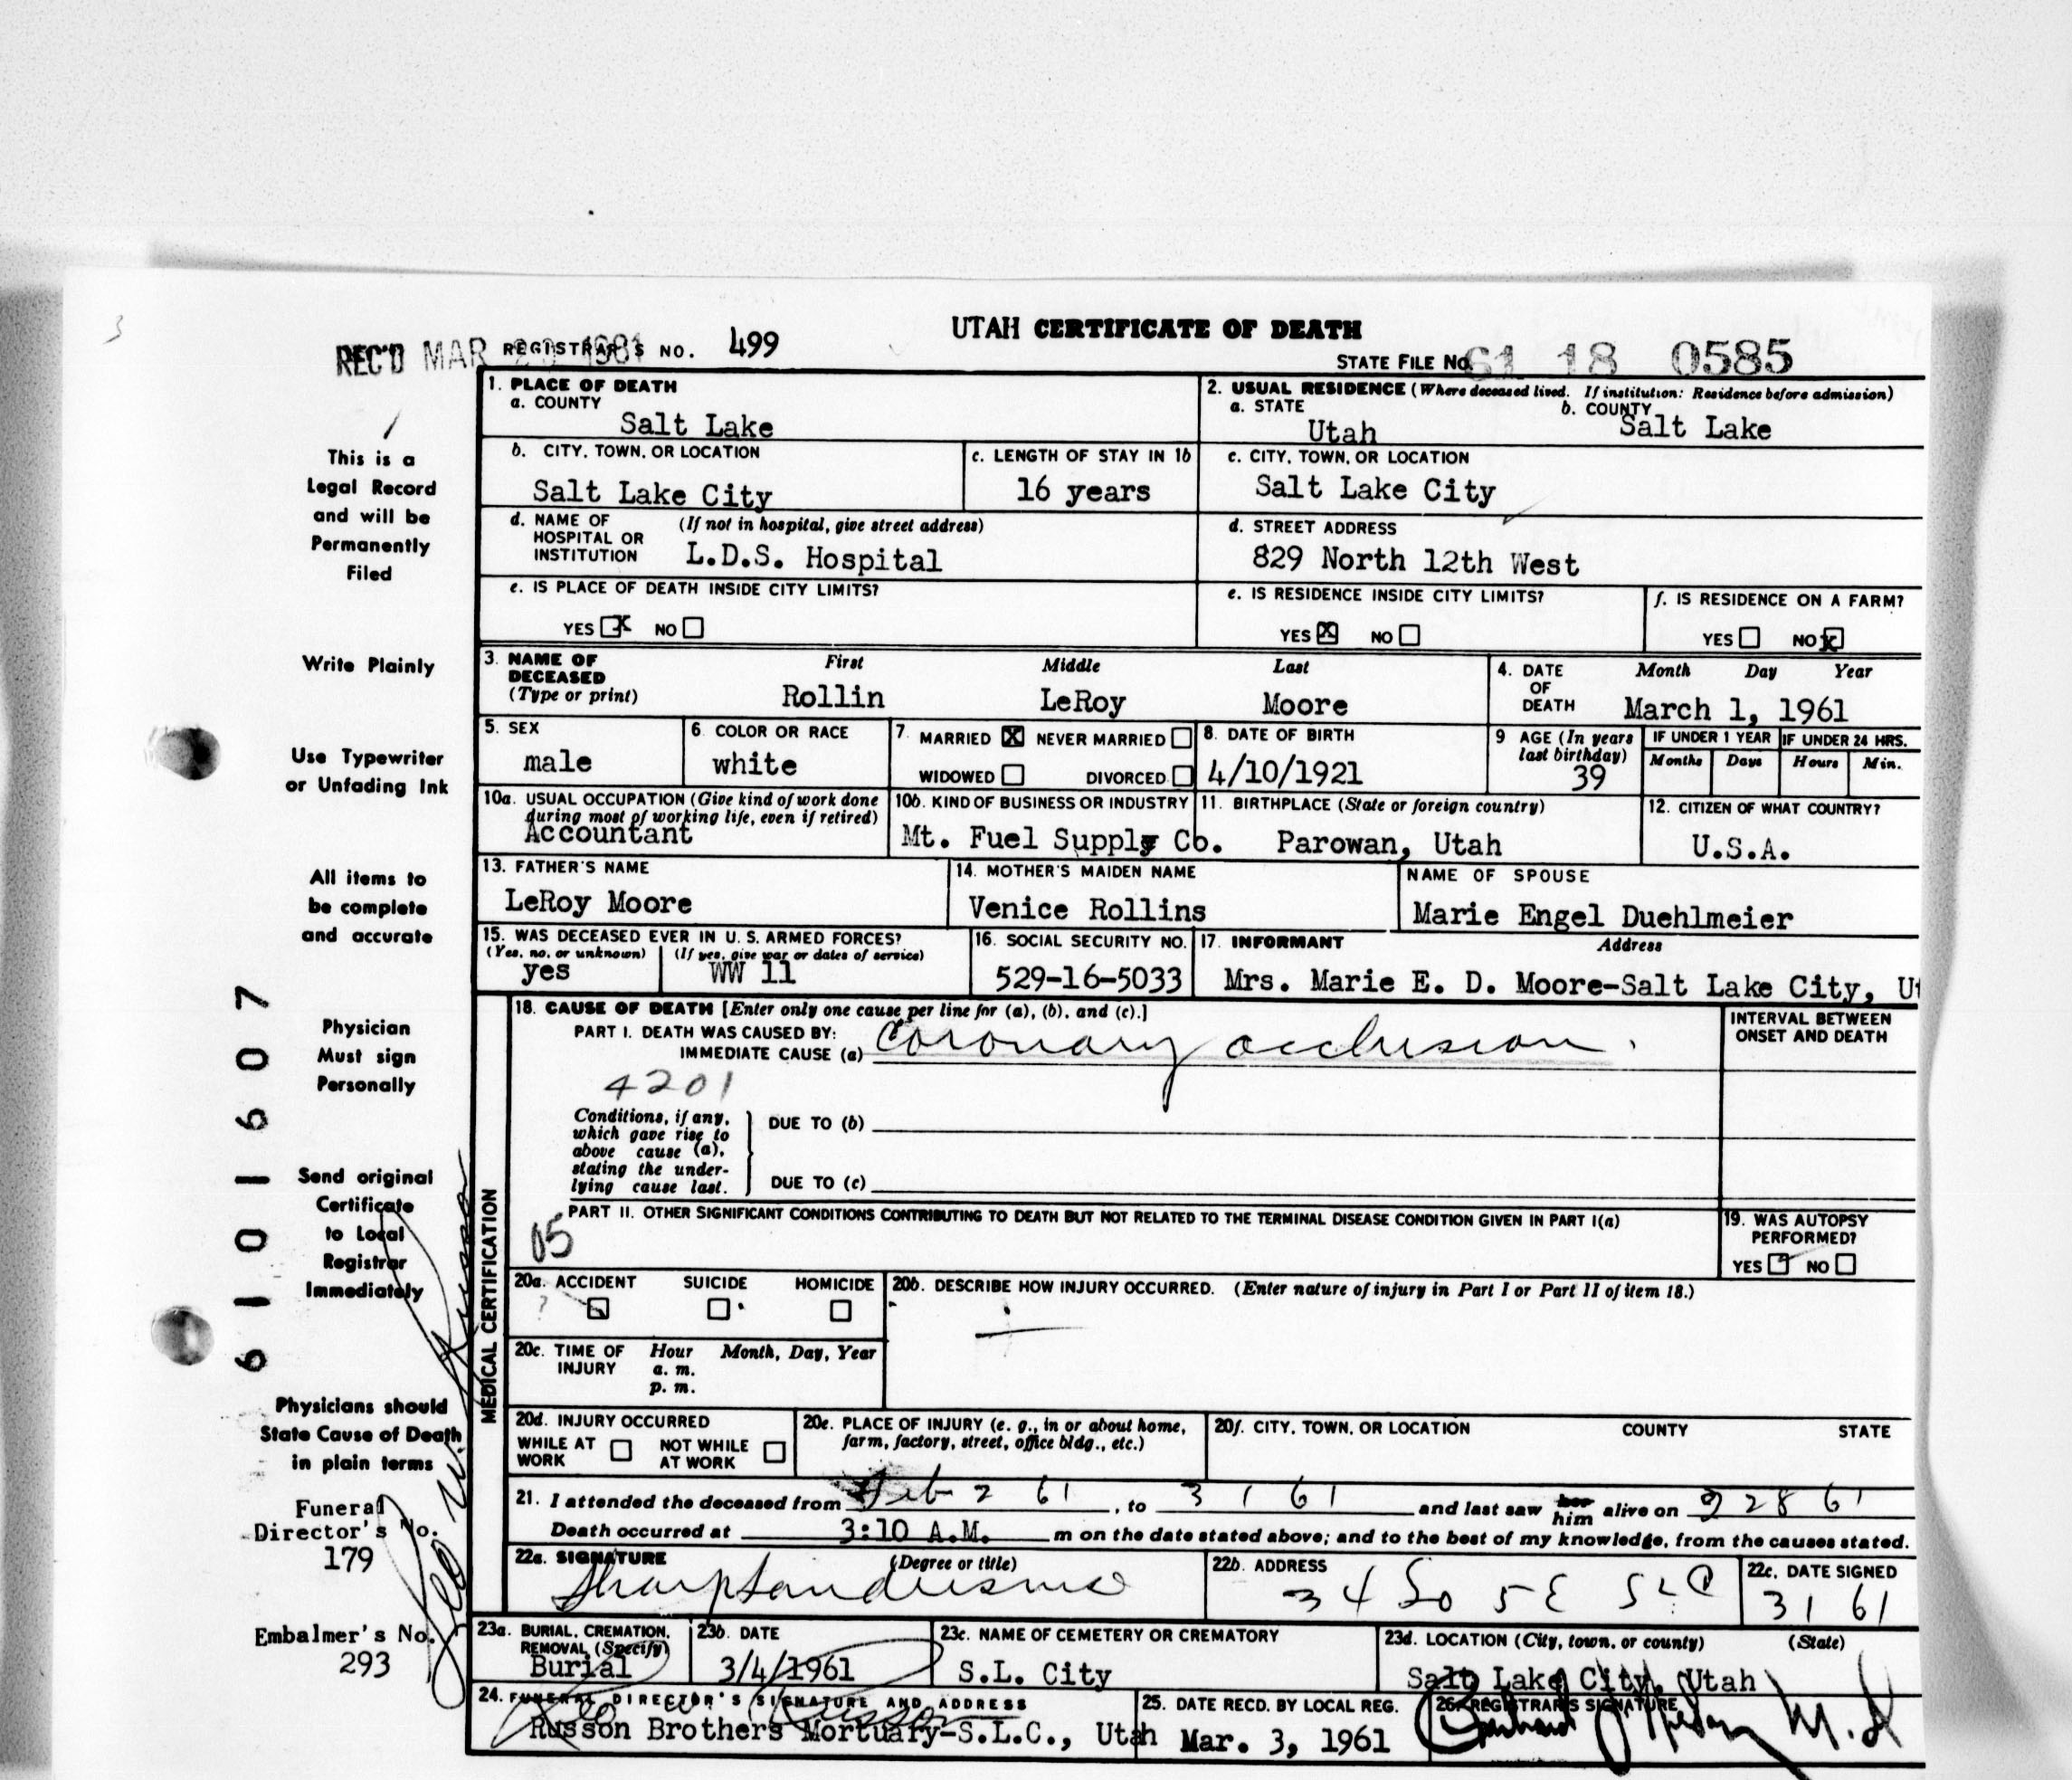 UTAH CERTIFICATE OF DEATH
REC'D MAR
REGISTRAR'S NO. 499
STATE FILE No. 61 18 0585
This is a
Legal Record
and will be
Permanently
Filed
Write Plainly
Use Typewriter
or Unfading Ink
All items to
be complete
and accurate
Physician
Must sign
Personally
Send original
Certificate
to Local
Registrar
Immediately
Physicians should
State Cause of Death
in plain terms
Funeral
Director's No.
179
Embalmer's No.
293
6101607
1. PLACE OF DEATH
a. COUNTY
Salt Lake
2. USUAL RESIDENCE (Where deceased lived. If institution: Residence before admission)
a. STATE b. COUNTY
Utah Salt Lake
b. CITY, TOWN, OR LOCATION
Salt Lake City
c. LENGTH OF STAY IN 1b
16 years
c. CITY, TOWN, OR LOCATION
Salt Lake City
d. NAME OF (If not in hospital, give street address)
HOSPITAL OR
INSTITUTION L.D.S. Hospital
d. STREET ADDRESS
829 North 12th West
e. IS PLACE OF DEATH INSIDE CITY LIMITS?
YES X NO
e. IS RESIDENCE INSIDE CITY LIMITS?
YES X NO
f. IS RESIDENCE ON A FARM?
YES NO X
3. NAME OF First Middle Last
DECEASED
(Type or print) Rollin LeRoy Moore
4. DATE Month Day Year
OF
DEATH March 1, 1961
5. SEX
male
6. COLOR OR RACE
white
7. MARRIED X NEVER MARRIED
WIDOWED DIVORCED
8. DATE OF BIRTH
4/10/1921
9 AGE (In years
last birthday)
39
IF UNDER 1 YEAR
Months Days
IF UNDER 24 HRS.
Hours Min.
10a. USUAL OCCUPATION (Give kind of work done
during most of working life, even if retired)
Accountant
10b. KIND OF BUSINESS OR INDUSTRY
Mt. Fuel Supply Co.
11. BIRTHPLACE (State or foreign country)
Parowan, Utah
12. CITIZEN OF WHAT COUNTRY?
U.S.A.
13. FATHER'S NAME
LeRoy Moore
14. MOTHER'S MAIDEN NAME
Venice Rollins
NAME OF SPOUSE
Marie Engel Duehlmeier
15. WAS DECEASED EVER IN U. S. ARMED FORCES?
(Yes, no, or unknown) (If yes, give war or dates of service)
yes WW 11
16. SOCIAL SECURITY NO.
529-16-5033
17. INFORMANT Address
Mrs. Marie E. D. Moore-Salt Lake City, Ut
MEDICAL CERTIFICATION
18. CAUSE OF DEATH [Enter only one cause per line for (a), (b), and (c).]
PART I. DEATH WAS CAUSED BY:
IMMEDIATE CAUSE (a) Coronary occlusion.
4201
Conditions, if any,
which gave rise to
above cause (a),
stating the under-
lying cause last.
DUE TO (b)
DUE TO (c)
INTERVAL BETWEEN
ONSET AND DEATH
PART II. OTHER SIGNIFICANT CONDITIONS CONTRIBUTING TO DEATH BUT NOT RELATED TO THE TERMINAL DISEASE CONDITION GIVEN IN PART I(a)
19. WAS AUTOPSY
PERFORMED?
YES NO
20a. ACCIDENT SUICIDE HOMICIDE
20b. DESCRIBE HOW INJURY OCCURRED. (Enter nature of injury in Part I or Part II of item 18.)
20c. TIME OF Hour Month, Day, Year
INJURY a. m.
p. m.
20d. INJURY OCCURRED
WHILE AT WORK NOT WHILE AT WORK
20e. PLACE OF INJURY (e. g., in or about home,
farm, factory, street, office bldg., etc.)
20f. CITY, TOWN, OR LOCATION COUNTY STATE
21. I attended the deceased from Feb 2 61, to 3 1 61 and last saw her him alive on 2 28 61
Death occurred at 3:10 A.M. m on the date stated above; and to the best of my knowledge, from the causes stated.
22a. SIGNATURE (Degree or title)
22b. ADDRESS
34 So 5 E SLC
22c. DATE SIGNED
3 1 61
23a. BURIAL, CREMATION,
REMOVAL (Specify)
Burial
23b. DATE
3/4/1961
23c. NAME OF CEMETERY OR CREMATORY
S.L. City
23d. LOCATION (City, town, or county) (State)
Salt Lake City, Utah
24. FUNERAL DIRECTOR'S SIGNATURE AND ADDRESS
Russon Brothers Mortuary-S.L.C., Utah
25. DATE RECD. BY LOCAL REG.
Mar. 3, 1961
26. REGISTRAR'S SIGNATURE